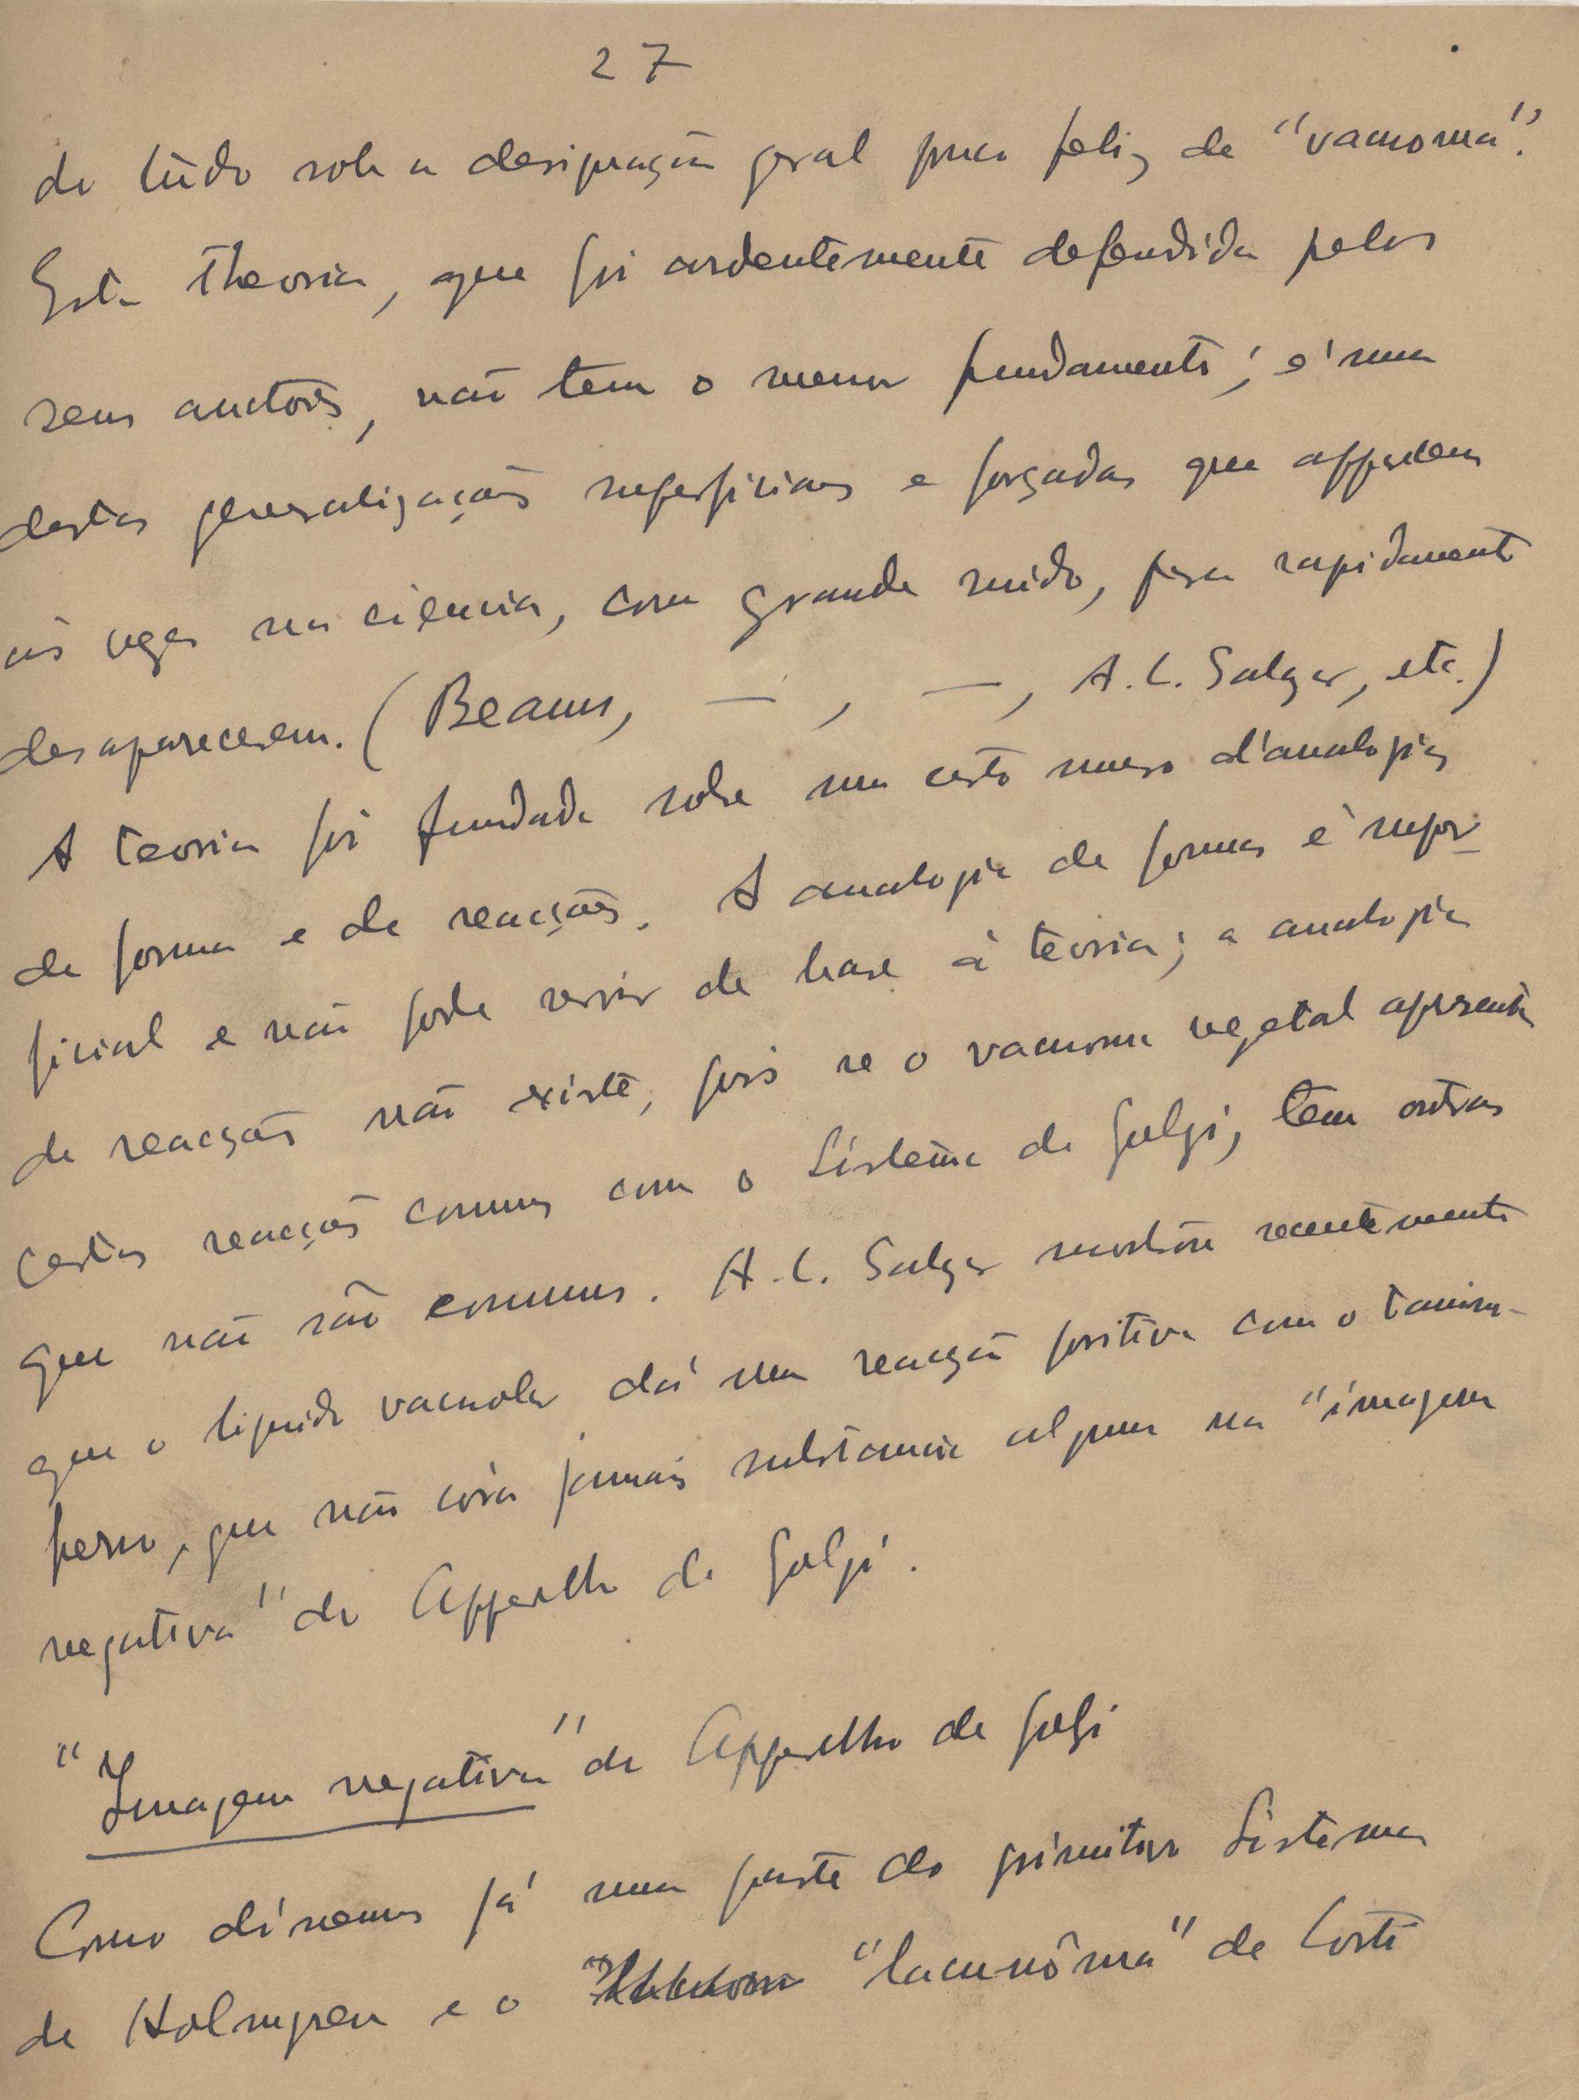 27
de tudo sob a designação geral pouco feliz de "vacuoma".
Esta theoria, que foi ardentemente defendida pelos
seus auctores, não tem o menor fundamento; é uma
destas generalizações superficiaes e forçadas que apparecem
ás vezes na ciencia, com grande ruido, para rapidamente
desaparecerem. (Beams, — , — , A. L. Salazar, etc.)
A teoria foi fundada sobre um certo numero d'analogias
de forma e de reacções. A analogia de formas é super-
ficial e não pode servir de base á teoria; a analogia
de reacções não existe, pois se o vacuoma vegetal apresenta
certas reacções comuns com o Sistema de Golgi, tem outras
que não são communs. A. L. Salazar mostrou recentemente
que o liquido vacuolar dá uma reacção positiva com o tanino-
ferro, que não córa jamais substancia alguma na "imagem
negativa" do Apparelho de Golgi.
"Imagem negativa" do Apparelho de Golgi
Como dissemos já uma parte do primitivo Sistema
de Holmgren e o "lacunôma" de Corti